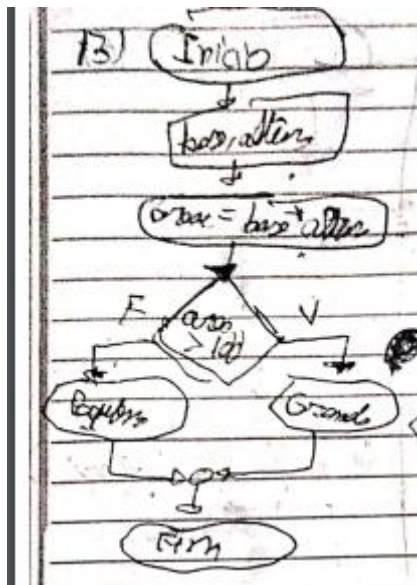 13) Iniab
base, altura
area = base * altura
F
V
area
> 100
Pequena
Grande
Fim